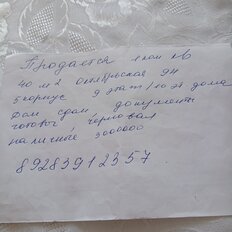 Продается 1 ком кв
40 м² Октябрьская 9Н
5 корпус 9 этаж/10 эт. дома
Дом сдан документы
готовы черновая
наличные 3000000
89283912357